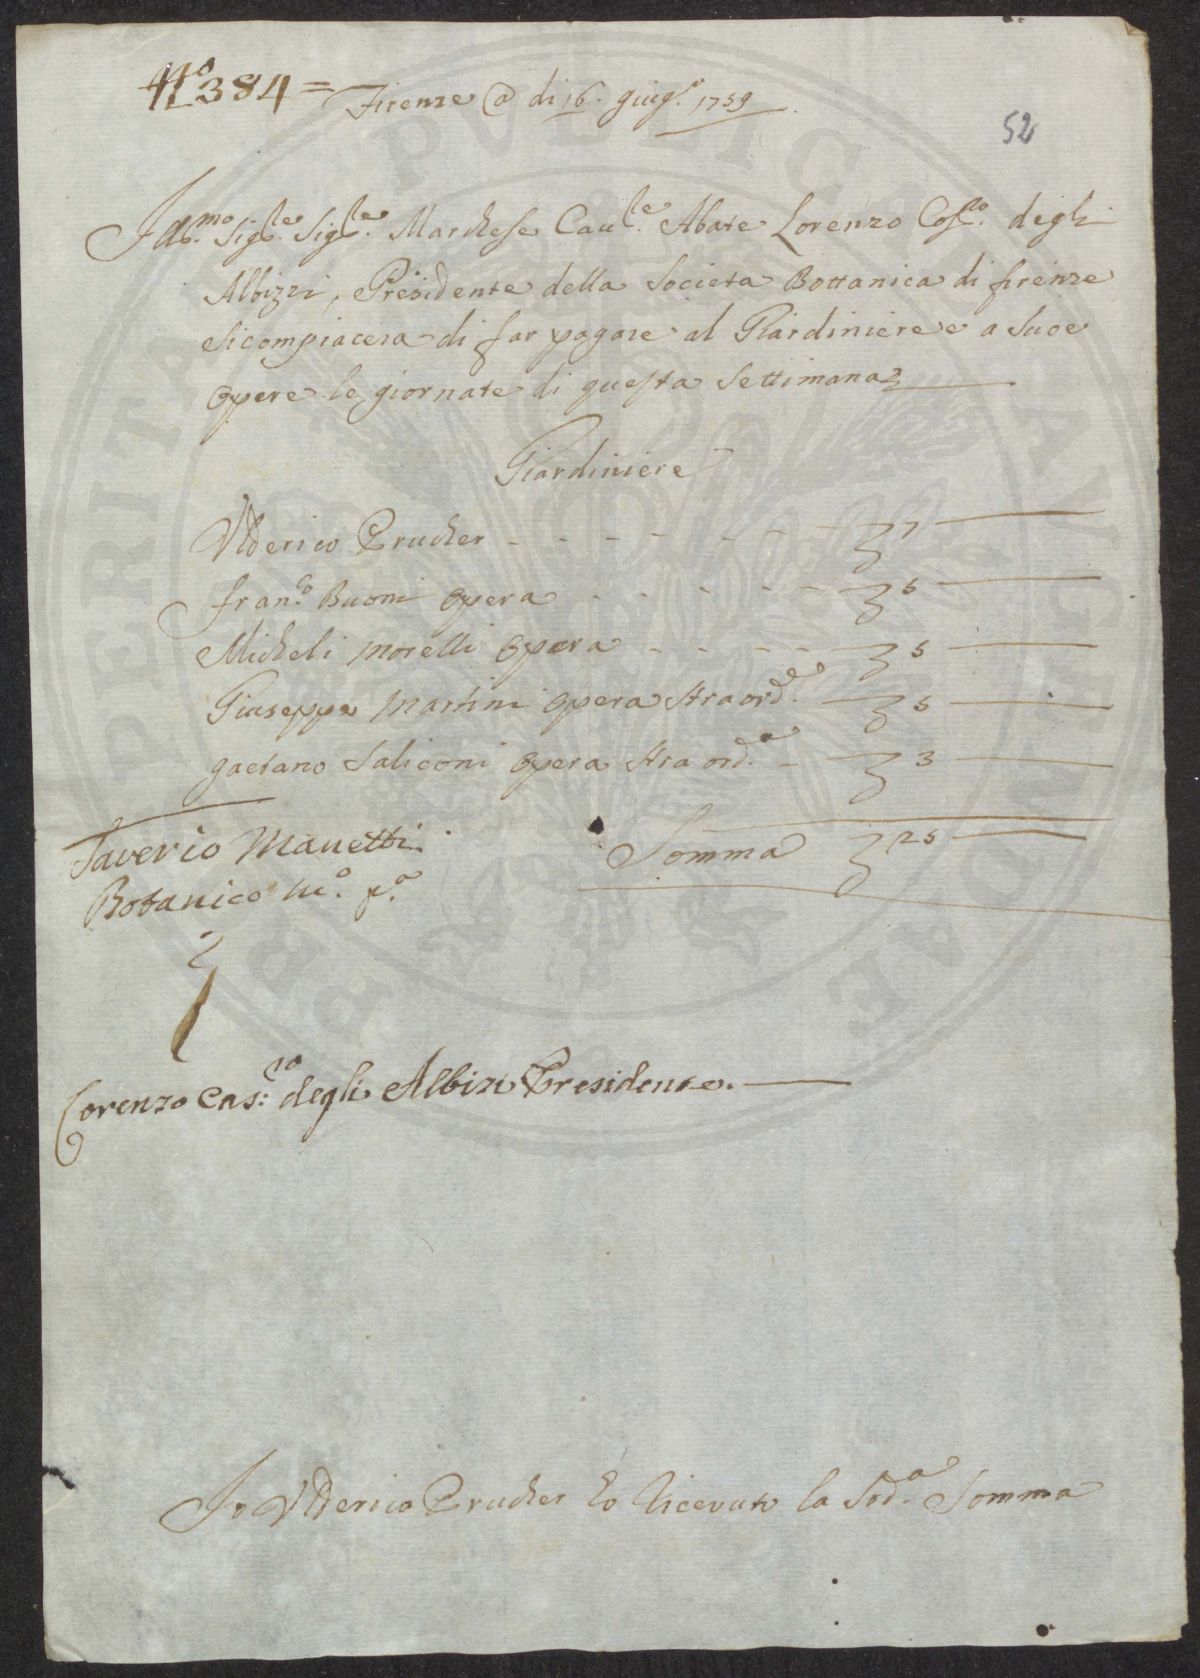 N.o 384 =
Firenze @ di 16. giug.o 1759
52
Ill.mo Sig.re Sig.re Marchese Cau.re Abate Lorenzo Cos.o degli
Albizzi, Presidente della Societa Bottanica di firenze
si compiacera di far pagare al Giardiniere e a Sue
opere le giornate di questa Settimana
Giardiniere
Vlderico Prucker - - - - - - - 7
Fran.co Buoni Opera - - - - - 5
Micheli Morelli Opera - - - - 5
Giuseppe Martini Opera Straord.e - 5
gaetano Saliconi Opera Straord.a - 3
Saverio Manetti
Botanico m.o p.a
Somma 25
Lorenzo Cas.ro degli Albizi Presidente.
Io Vlderico Prucker ho Ricevuto la Sod.a Somma
PERITATI PVBLICAE